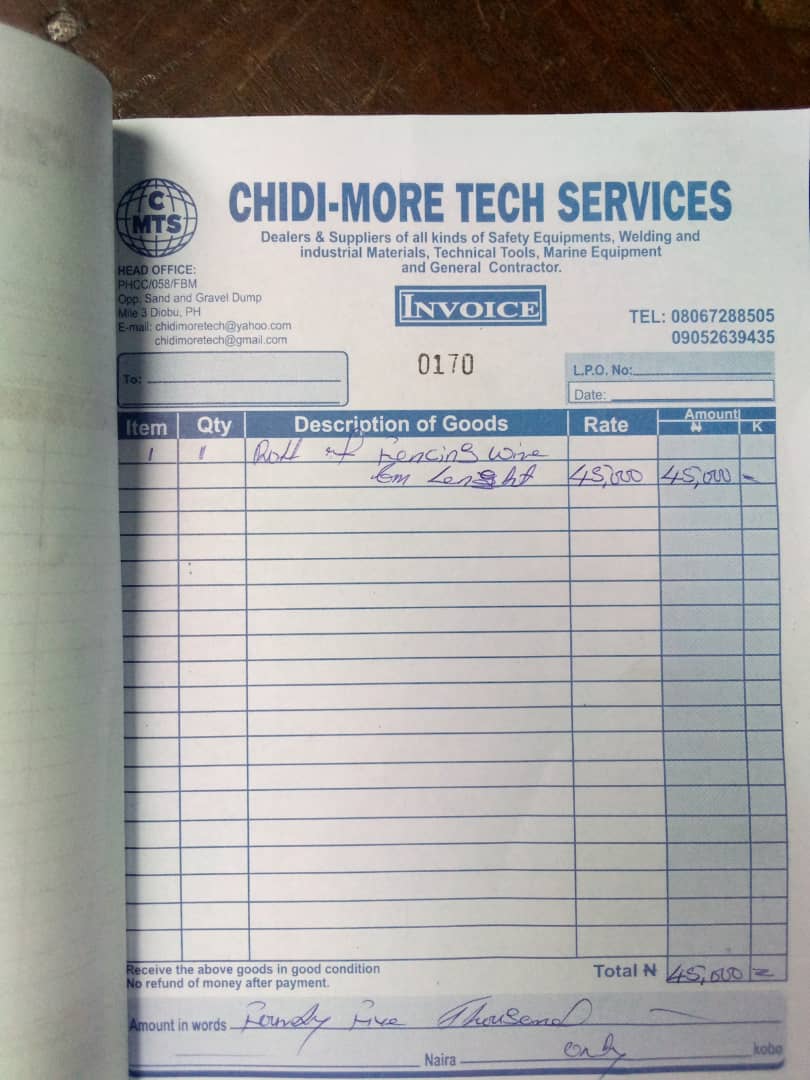 C
MTS
CHIDI-MORE TECH SERVICES
Dealers & Suppliers of all kinds of Safety Equipments, Welding and
industrial Materials, Technical Tools, Marine Equipment
and General Contractor.
HEAD OFFICE:
PHCC/058/FBM
Opp. Sand and Gravel Dump
Mile 3 Diobu, PH
E-mail: chidimoretech@yahoo.com
chidimoretech@gmail.com
INVOICE
TEL: 08067288505
09052639435
0170
To:
L.P.O. No:
Date:
Item Qty Description of Goods Rate Amount
₦ K
1 1 Roll of Fencing wire
Lenght 45,000 45,000 -
Receive the above goods in good condition
No refund of money after payment.
Total ₦ 45,000 =
Amount in words Five Thousand
Naira only kobo